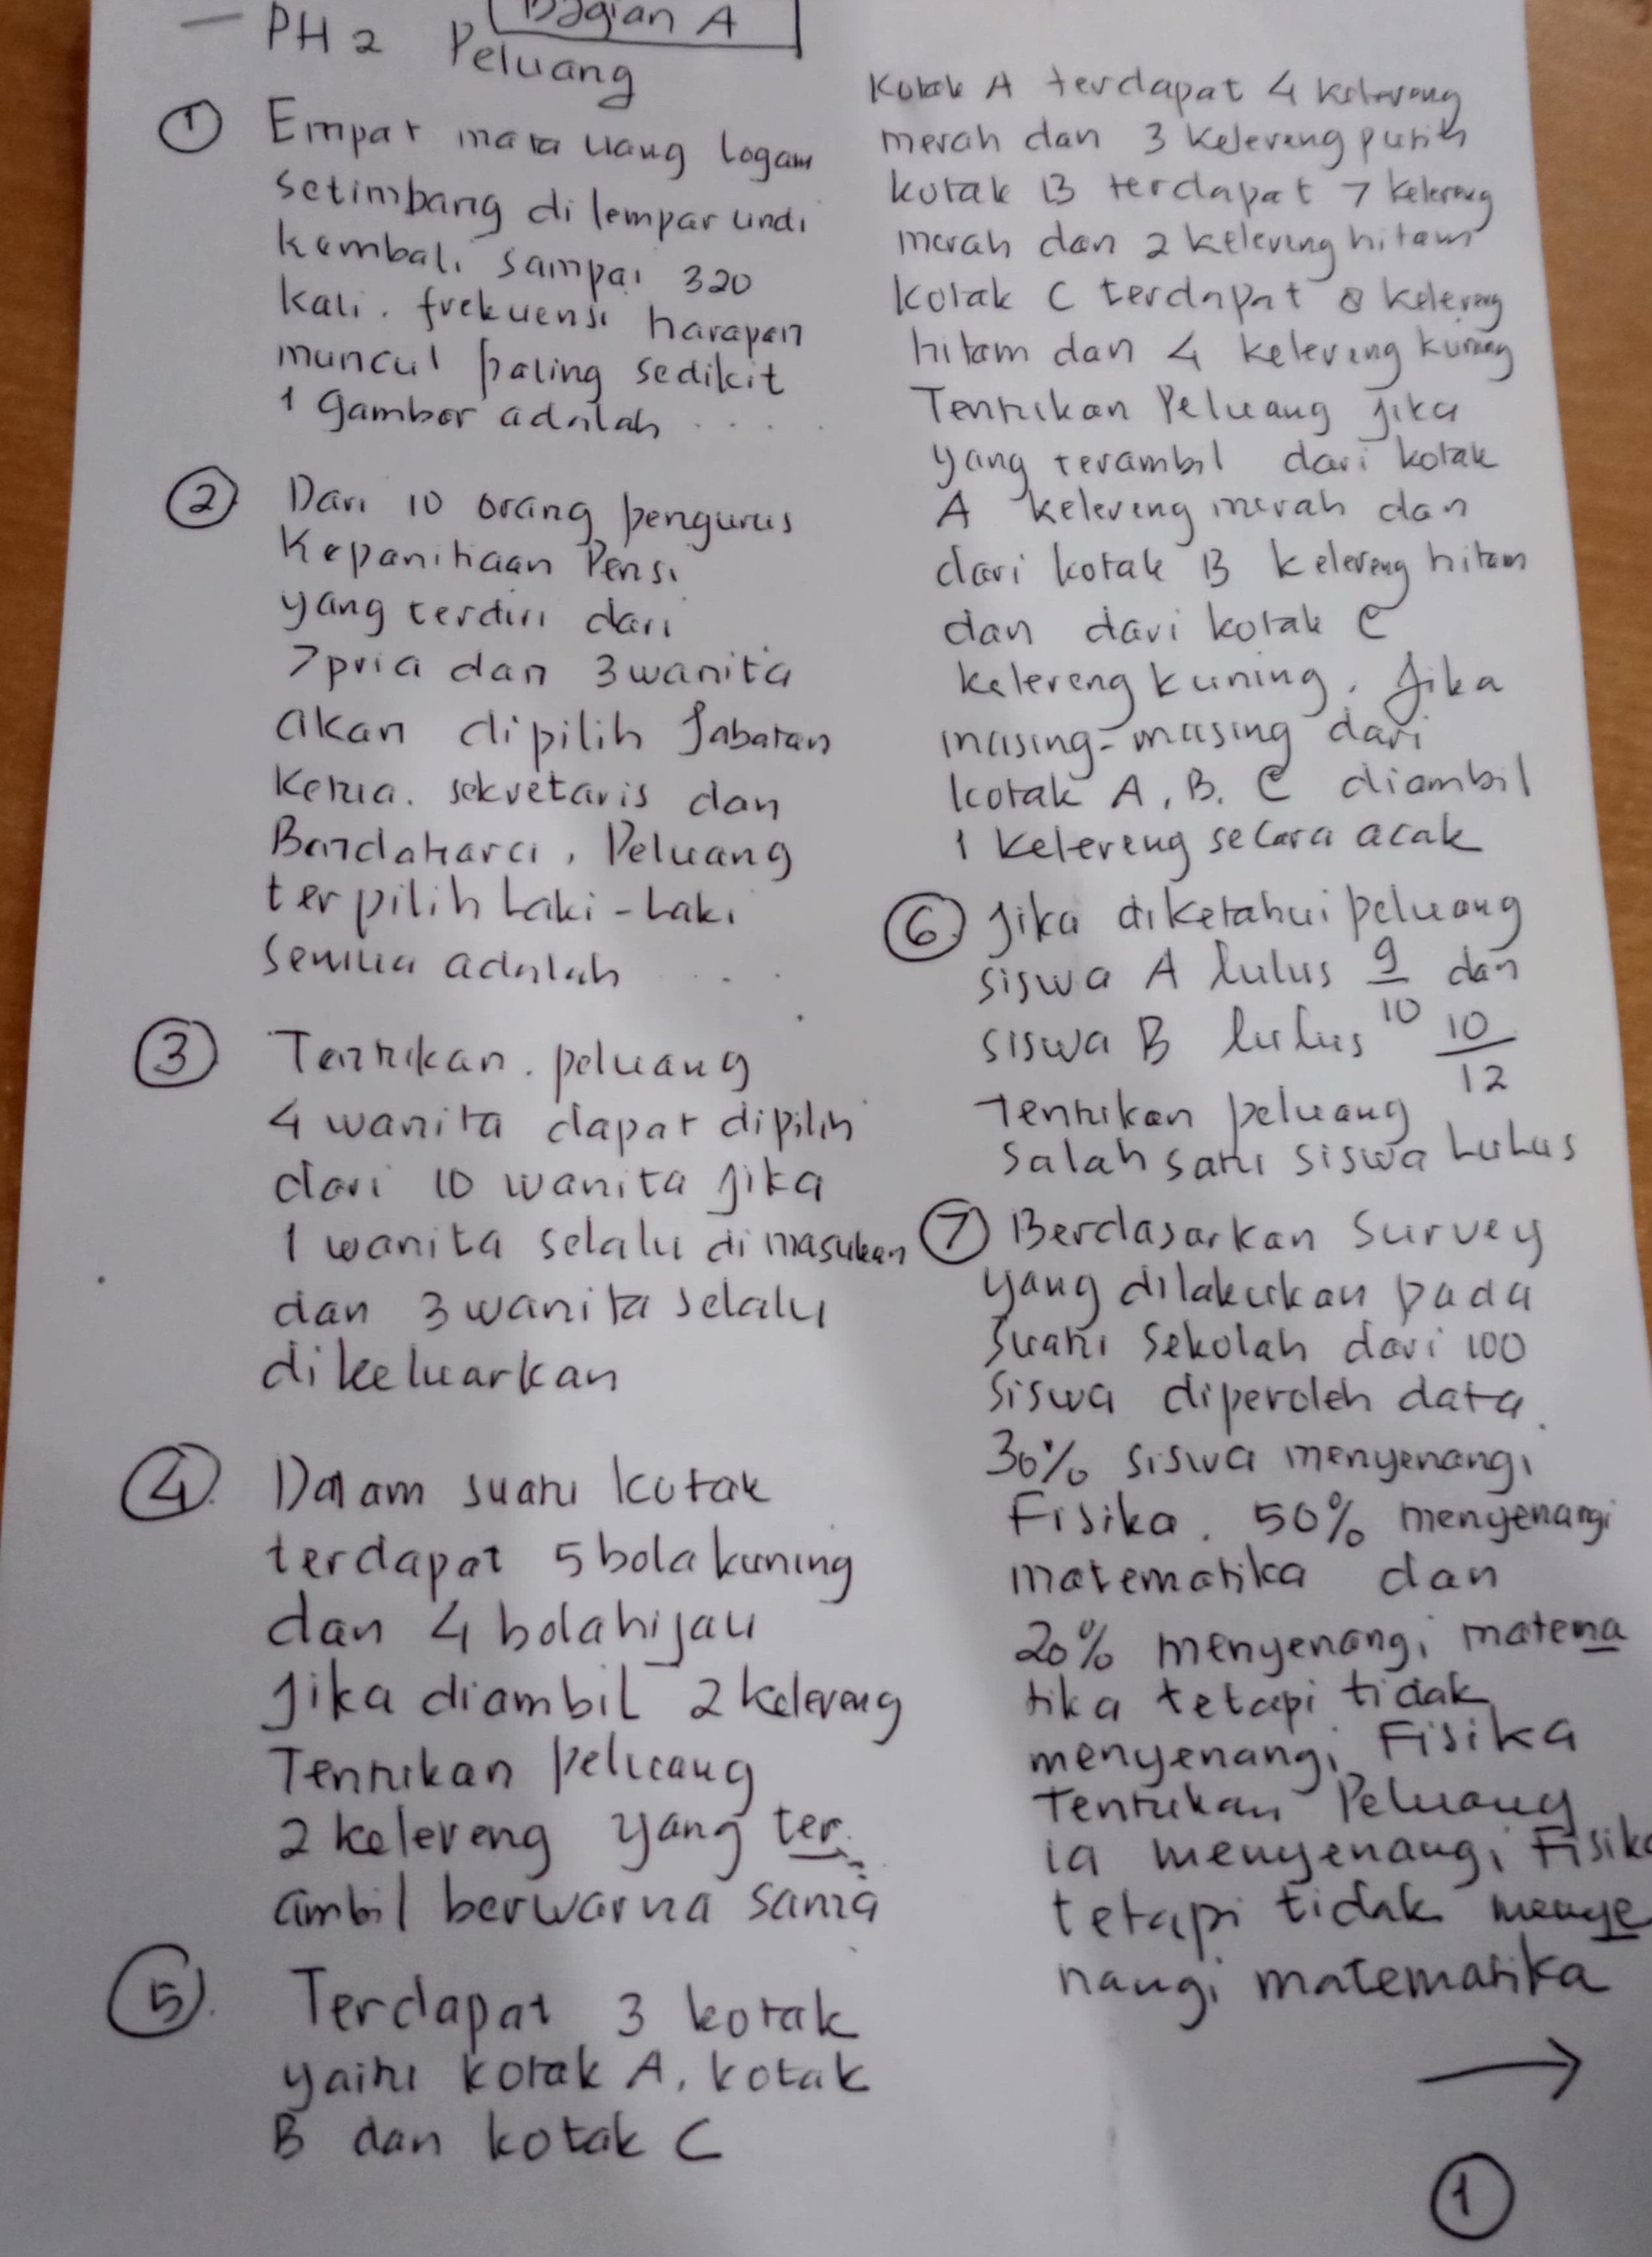 Bagian A
PH 2 Peluang
① Empat mata uang logam
setimbang di lempar undi
kembali sampai 320
kali. frekuensi harapan
muncul paling sedikit
1 gambar adalah ....
② Dari 10 orang pengurus
Kepanitiaan Pensi
yang terdiri dari
7 pria dan 3 wanita
akan dipilih Jabatan
Ketua. sekretaris dan
Bandahara, Peluang
terpilih Laki-Laki
semua adalah ...
③ Tentukan. peluang
4 wanita dapat dipilih
dari 10 wanita jika
1 wanita selalu di masukan
dan 3 wanita selalu
dikeluarkan
④. Dalam suatu kotak
terdapat 5 bola kuning
dan 4 bola hijau
jika diambil 2 kelereng
Tentukan peluang
2 kelereng yang ter
ambil berwarna sama
⑤. Terdapat 3 kotak
yaitu kotak A, kotak
B dan kotak C
Kotak A terdapat 4 kelereng
merah dan 3 kelereng putih
kotak B terdapat 7 kelereng
merah dan 2 kelereng hitam
kotak C terdapat 8 kelereng
hitam dan 4 kelereng kuning
Tentukan Peluang jika
yang terambil dari kotak
A kelereng merah dan
dari kotak B kelereng hitam
dan dari kotak C
kelereng kuning. Jika
masing-masing dari
kotak A, B. C diambil
1 kelereng secara acak
⑥ Jika diketahui peluang
siswa A lulus 9/10 dan
siswa B lulus 10/12
Tentukan peluang
salah satu siswa Lulus
⑦ Berdasarkan Survey
yang dilakukan pada
suatu sekolah dari 100
siswa diperoleh data.
30% siswa menyenangi
Fisika. 50% menyenangi
matematika dan
20% menyenangi matema
tika tetapi tidak
menyenangi Fisika
Tentukan Peluang
ia menyenangi Fisika
tetapi tidak menye
nangi matematika
→
①